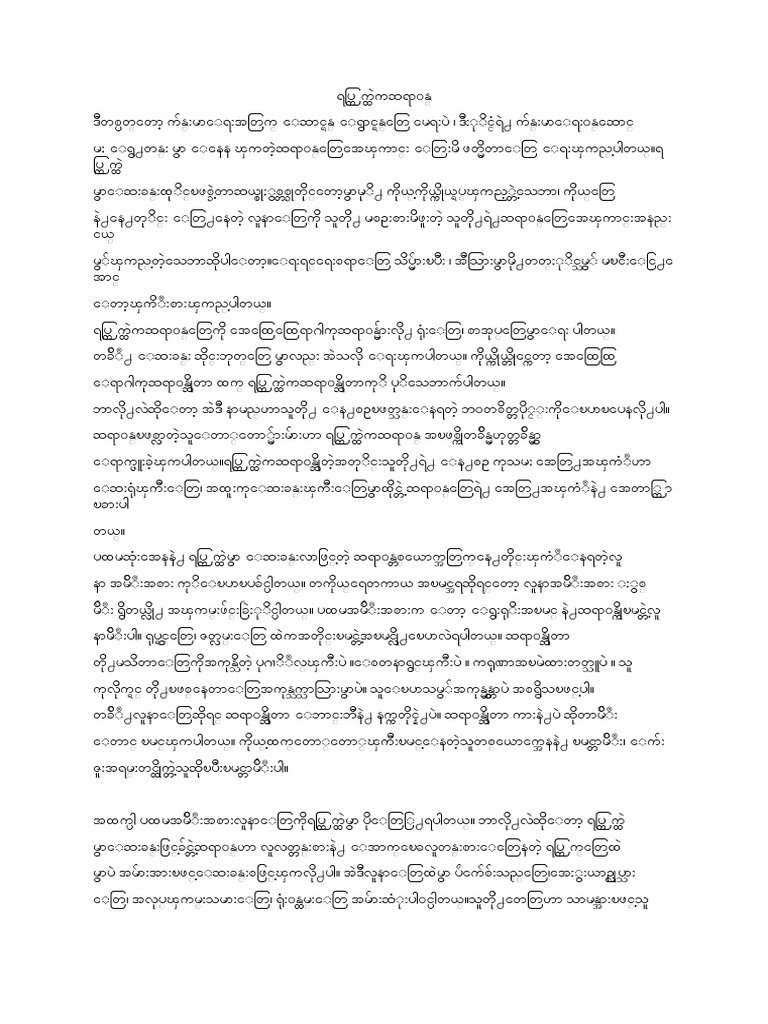 ရပ္ကြက္ထဲကဆရာ၀န္
ဒီတစ္ပတ္ေတာ့ က်န္းမာေရးအတြက္ ေဆာင္ရန္ ေရွာင္ရန္ေတြ မေရးပဲ ၊ ဒီႏိုင္ငံရဲ႕ က်န္းမာေရး၀န္ေဆာင္
မႈ ေရွ႕တန္း မွာ ေနေန ၾကတဲ့ဆရာ၀န္ေတြအေၾကာင္း ေတြးမိ ဖတ္မိတာေတြ ေရးၾကည့္ပါတယ္။ရ
ပ္ကြက္ထဲ
မွာေဆးခန္းထုိင္ၿဖစ္ခဲ့တာဆယ္စုႏွစ္တစ္ခုတိုင္ေတာ့မွာမုိ႕ ကိုယ့္ကိုယ္ကိုယ္ၿပန္ၾကည့္တဲ့သေဘာ၊ ကိုယ္ေတြ
နဲ႕ေန႕တုိင္း ေတြ႕ေနတဲ့ လူနာေတြကို သူတို႕ မစဥ္းစားမိဖူးတဲ့ သူတို႕ရဲ႕ဆရာ၀န္ေတြအေၾကာင္းအနည္း
ငယ္
မွ်ၾကည့္တဲ့သေဘာဆိုပါေတာ့။ေရးရင္းေရးစရာေတြ သိပ္မ်ားၿပီး ၊ အီသြားမွာမို႕တတ္ႏိုင္သမွ် မၿငီးေငြ႕ေ
အာင္
ေတာ့ၾကိဳးစားၾကည့္ပါတယ္။
ရပ္ကြက္ထဲကဆရာ၀န္ေတြကို အေထြေထြေရာဂါကုဆရာ၀န္မ်ားလို႕ ရုံးေတြ၊ စာအုပ္ေတြမွာေရး ပါတယ္။
တခ်ိဳ႕ ေဆးခန္း ဆိုင္းဘုတ္ေတြ မွာလည္း အဲသလို ေရးၾကပါတယ္။ ကိုယ္ကိုယ္တိုင္ကေတာ့ အေထြေထြ
ေရာဂါကုဆရာ၀န္ဆိုတာ ထက္ ရပ္ကြက္ထဲကဆရာ၀န္ဆိုတာကုိ ပုိသေဘာက်ပါတယ္။
ဘာလို႕လဲဆိုေတာ့ အဲဒီ နာမည္ဟာသူတို႕ ေန႕စဥ္ၿဖတ္သန္းေနရတဲ့ ဘ၀တစိတ္တပိုင္းကိုေၿပာၿပေနလို႕ပါ။
ဆရာ၀န္ၿဖစ္လာတဲ့သူေတာ္ေတာ္မ်ားမ်ားဟာ ရပ္ကြက္ထဲကဆရာ၀န္ အၿဖစ္ကိုတခ်ိန္မဟုတ္တခ်ိန္မွာ
ေရာက္ဖူးခဲ့ၾကပါတယ္။ရပ္ကြက္ထဲကဆရာ၀န္ဆိုတဲ့အတုိင္းသူတို႕ရဲ႕ ေန႕စဥ္ ကုသမႈ အေတြ႕အၾကံဳဟာ
ေဆးရုံၾကီးေတြ၊ အထူးကုေဆးခန္းၾကီးေတြမွာထိုင္တဲ့ဆရာ၀န္ေတြရဲ႕ အေတြ႕အၾကံဳနဲ႕ အေတာ္ကြာ
ၿခားပါ
တယ္။
ပထမဆုံးအေနနဲ႕ ရပ္ကြက္ထဲမွာ ေဆးခန္းလာဖြင့္တဲ့ ဆရာ၀န္တစ္ေယာက္အတြက္ေန႕တိုင္းၾကံဳေနရတဲ့လူ
နာ အမ်ိဳးအစား ကုိေၿပာၿပခ်င္ပါတယ္။ တကိုယ္ေရတကာယ အၿမင္အရဆိုရင္ေတာ့ လူနာအမ်ိဳးအစား ႏွစ္
မ်ိဳး ရွိတယ္လို႕ အၾကမ္းဖ်င္းခြဲႏုိင္ပါတယ္။ ပထမအမ်ိဳးအစားက ေတာ့ ေရွးရုိးအၿမင္ နဲ႕ဆရာ၀န္ကိုၿမင္တဲ့လူ
နာမ်ိဳးပါ။ ရုပ္ရွင္ေတြ၊ ဇတ္လမ္းေတြ ထဲကအတိုင္းၿမင္တဲ့အၿမင္လို႕ေၿပာလဲရပါတယ္။ ဆရာ၀န္ဆိုတာ
တို႕မသိတာေတြကိုအကုန္သိတဲ့ ပုဂၢိဳလ္ၾကီးပဲ ။ေစတနာရွင္ၾကီးပဲ ။ ကရုဏာအၿမဲထားတတ္သူပဲ ။ သူ
ကုလိုက္ရင္ တို႕ၿဖစ္ေနတာေတြအကုန္သက္သာသြားမွာပဲ။ သူေၿပာသမွ်အကုန္မွန္တာပဲ အစရွိသၿဖင့္ပါ။
တခ်ိဳ႕လူနာေတြဆိုရင္ ဆရာ၀န္ဆိုတာ ေဘာင္းဘီနဲ႕ နက္ကတိုင္နဲ႕ပဲ။ ဆရာ၀န္ဆိုတာ ကားနဲ႕ပဲ ဆိုတာမ်ိဳး
ေတာင္ ၿမင္ၾကပါတယ္။ ကိုယ့္ထက္ေတာ္ေတာ္ၾကီးၿမင့္ေနတဲ့သူတစ္ေယာက္အေနနဲ႕ ၿမင္တာမ်ိဳး၊ ေက်း
ဇူးအရမ္းတင္ထိုက္တဲ့သူဆိုၿပီးၿမင္တာမ်ိဳးပါ။
အထက္ပါ ပထမအမ်ိဳးအစားလူနာေတြကိုရပ္ကြက္ထဲမွာ ပိုေတြ႕ရပါတယ္။ ဘာလို႕လဲဆိုေတာ့ ရပ္ကြက္ထဲ
မွာေဆးခန္းဖြင့္ခ်င္တဲ့ဆရာ၀န္ဟာ လူလတ္တန္းစားနဲ႕ ေအာက္ေၿခလူတန္းစားေတြေနတဲ့ ရပ္ကြက္ေတြထဲ
မွာပဲ အမ်ားအားၿဖင့္ေဆးခန္းစဖြင့္ၾကလို႕ပါ။ အဲဒီလူနာေတြထဲမွာ ပ်ံက်ေစ်းသည္ေတြ၊အေႏွးယာဥ္လုပ္သား
ေတြ၊ အလုပ္ၾကမ္းသမားေတြ၊ ရုံး၀န္ထမ္းေတြ အမ်ားဆံုးပါ၀င္ပါတယ္။သူတို႕ေတြဟာ သာမန္အားၿဖင့္သူ